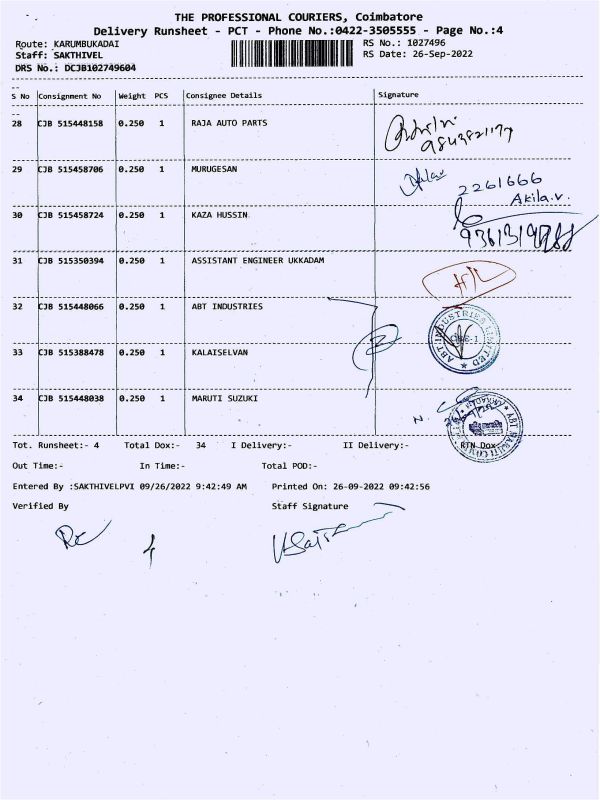 THE PROFESSIONAL COURIERS, Coimbatore
Delivery Runsheet - PCT - Phone No.:0422-3505555 - Page No.:4
Route: KARUMBUKADAI RS No.: 1027496
Staff: SAKTHIVEL RS Date: 26-Sep-2022
DRS No.: DCJB102749604
S No Consignment No Weight PCS Consignee Details Signature
28 CJB 515448158 0.250 1 RAJA AUTO PARTS
9843821177
29 CJB 515458706 0.250 1 MURUGESAN
2261666
Akila.v.
30 CJB 515458724 0.250 1 KAZA HUSSIN
31 CJB 515350394 0.250 1 ASSISTANT ENGINEER UKKADAM
32 CJB 515448066 0.250 1 ABT INDUSTRIES
ABT INDUSTRIES LIMITED
33 CJB 515388478 0.250 1 KALAISELVAN
34 CJB 515448038 0.250 1 MARUTI SUZUKI
Tot. Runsheet:- 4 Total Dox:- 34 I Delivery:- II Delivery:- RTN Dox
Out Time:- In Time:- Total POD:-
Entered By :SAKTHIVELPVI 09/26/2022 9:42:49 AM Printed On: 26-09-2022 09:42:56
Verified By Staff Signature